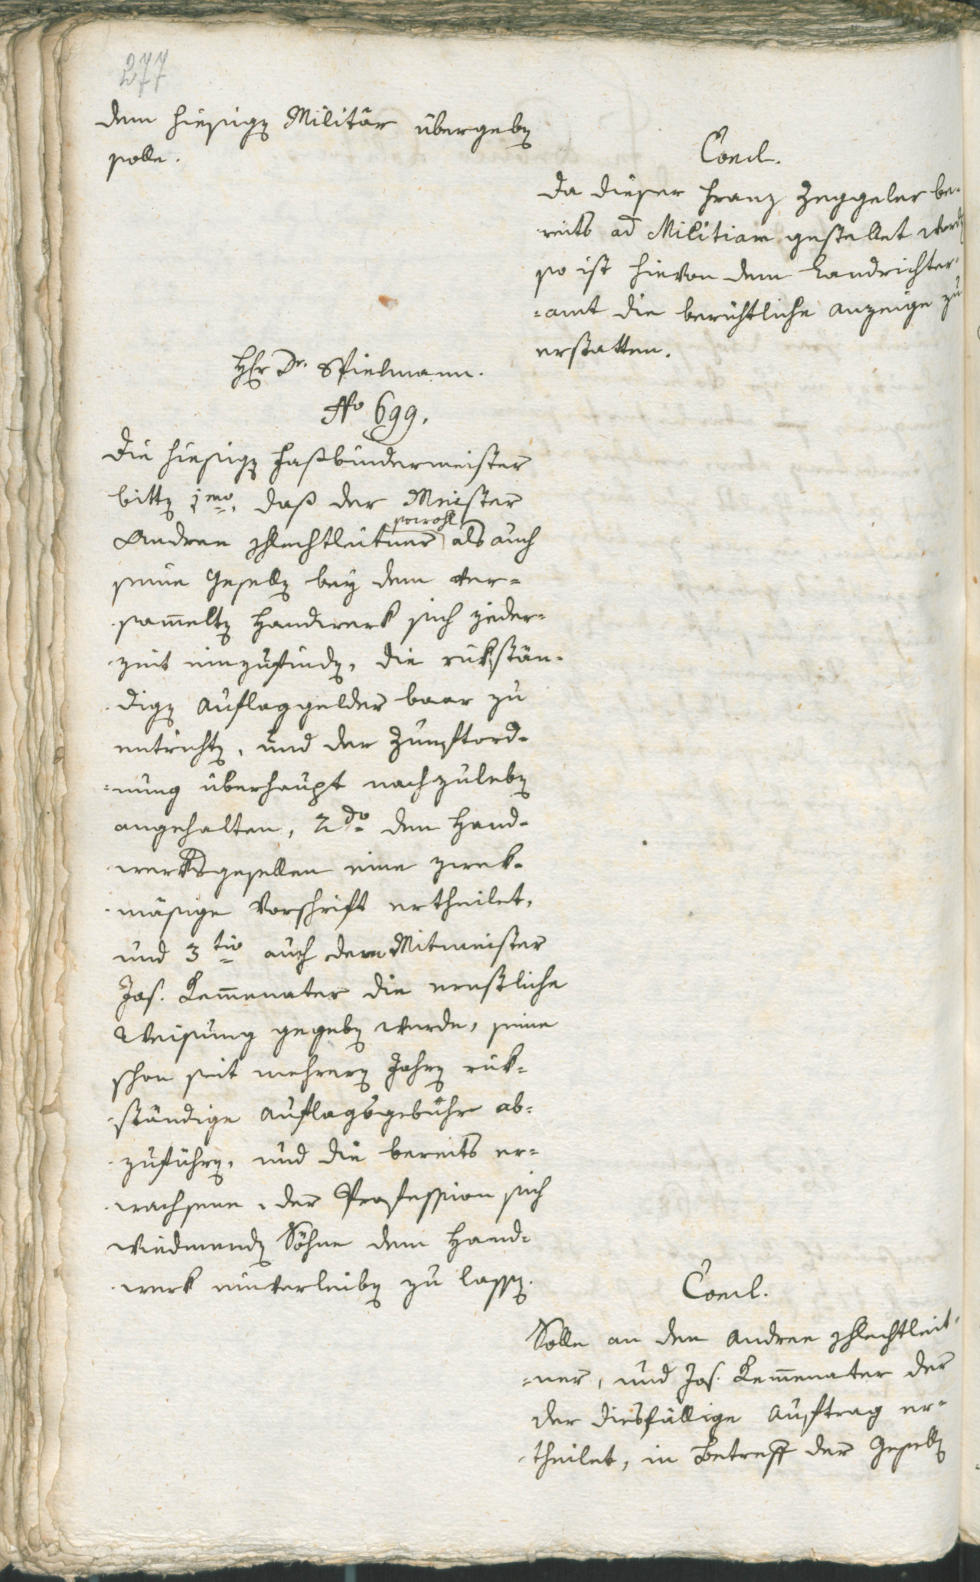 277
dem hiesigen Militär übergeben
solle.
Concl.
Da dieser Franz Zeggeler be-
reits ad Militiam gestellet worden
so ist hievon dem Landrichter-
=amt die berichtliche Anzeige zu
erstatten.
Hr Dr. Spielmann.
No 699.
Die hiesigen Faßbindermeister
bitten 1mo, daß der Meister
Andree Schlechtleitner sowohl als auch
seine Gesellen bey dem ver=
sam̄elten Handwerk sich jeder=
zeit einzufinden, die rükstän-
digen Auflaggelder baar zu
entrichten, und der Zunftord-
=nung überhaupt nachzuleben
angehalten, 2do den Hand-
werksgesellen eine zwek-
mäsige Vorschrift ertheilet,
und 3tio auch dem Mitmeister
Jos. Kem̄enater die ernstliche
Weisung gegeben werde, seine
schon seit mehreren Jahren rük=
ständige Auflagsgebühr ab=
zuführen, und die bereits er=
wachsene, der Profession sich
wiedmenden Söhne dem Hand=
werk einverleiben zu lassen.
Concl.
Solle an den Andree Schlechtleit=
=ner, und Jos. Kem̄enater der
der diesfällige Auftrag er=
theilet, in Betreff der Gesellen